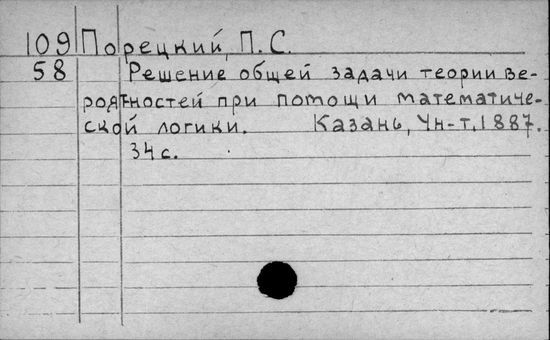 109 Порецкий, П.С.
58 Решение общей задачи теории ве-
роятностей при помощи математиче-
ской логики. Казань, Ун-т, 1887.
34 с.